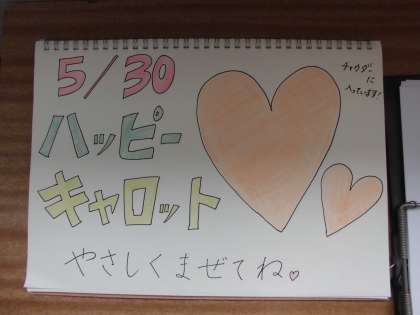 5/30
チャウダーに
入っています!
ハッピー
キャロット
やさしくまぜてね♥